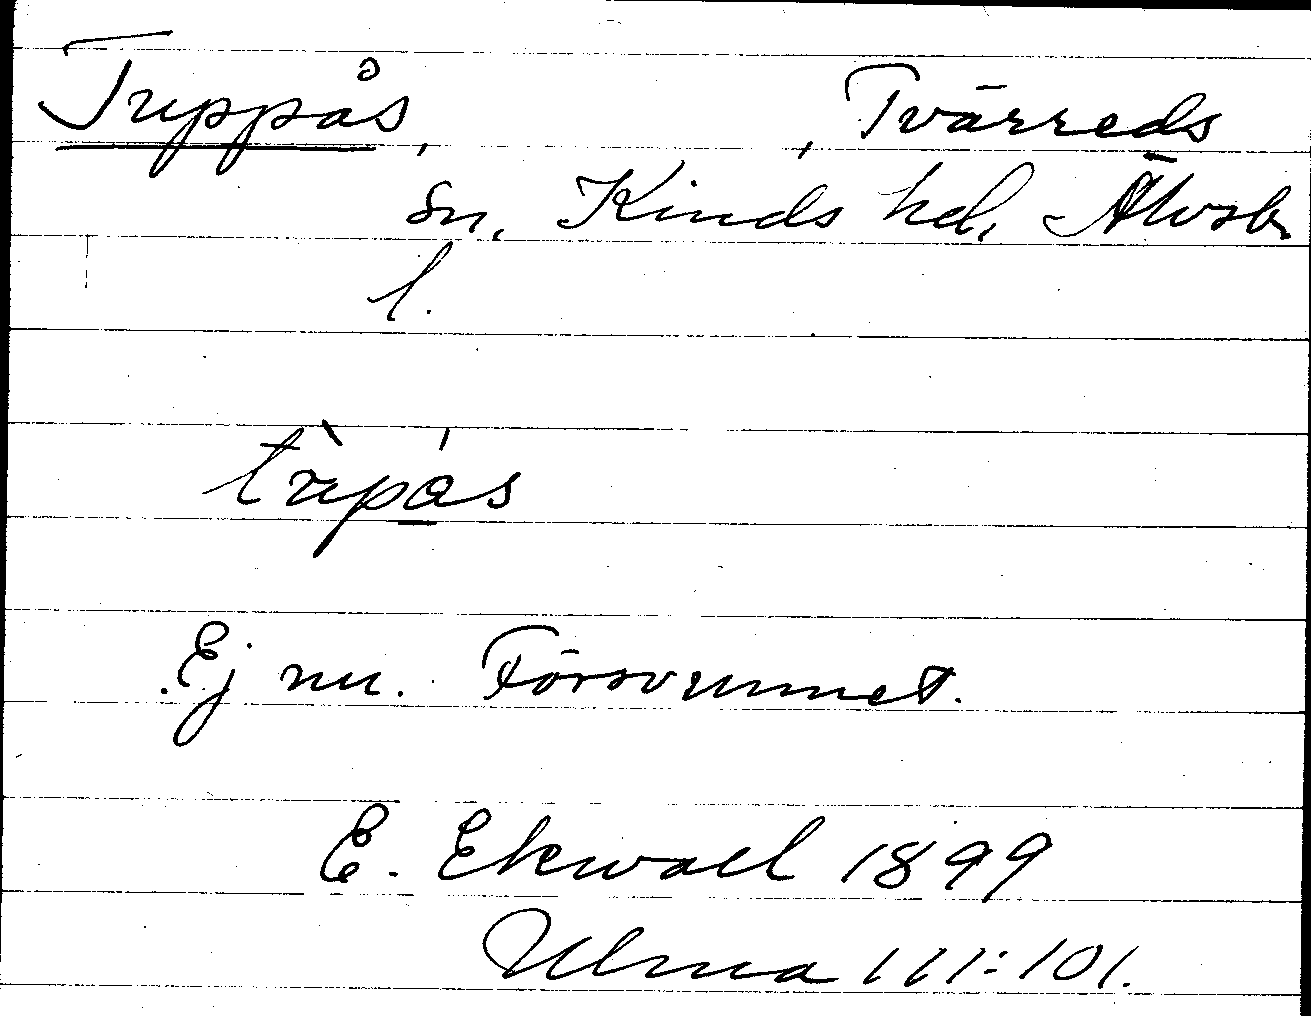 Truppås, , Tvärreds
sn, Kinds hd, Älvsb
l.
trùpás
Ej nu. Försvunnet.
E. Ekwall 1899
Ulma 111:101.